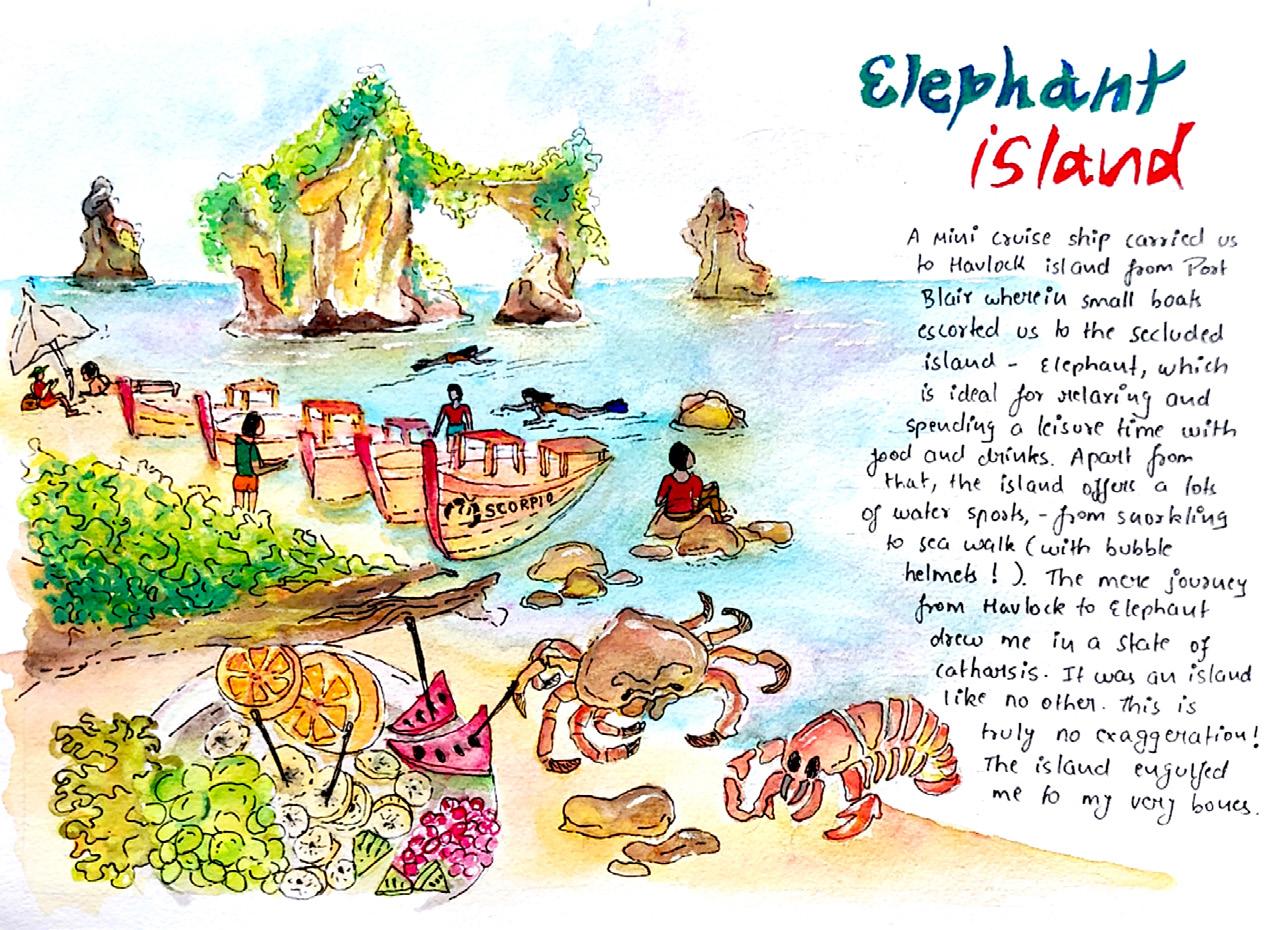 Elephant
island
A Mini cruise ship carried us
to Havlock island from Port
Blair wherein small boats
escorted us to the secluded
island - Elephant, which
is ideal for relaxing and
spending a leisure time with
food and drinks. Apart from
that, the island offers a lots
of water sports, - from snorkling
to sea walk (with bubble
helmets ! ). The mere journey
from Havlock to Elephant
drew me in a state of
catharsis. It was an island
like no other. This is
truly no exaggeration!
The island engulfed
me to my very bones.
SCORPIO